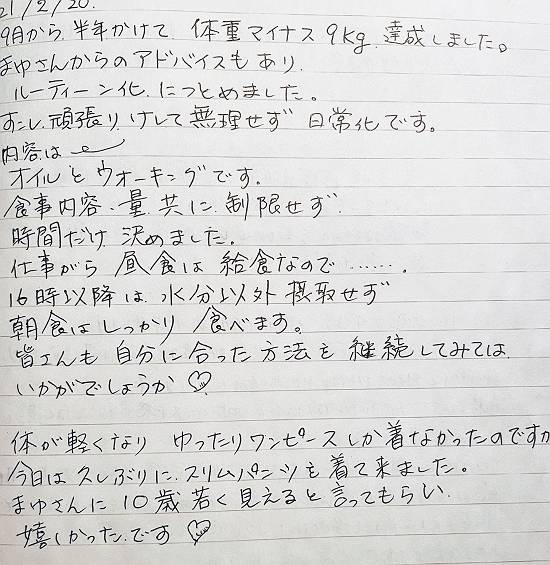 21/2/20.
9月から半年かけて体重マイナス9kg達成しました。
まゆさんからのアドバイスもあり
ルーティーン化につとめました。
すこし頑張り、けして無理せず日常化です。
内容は
オイルとウオーキングです。
食事内容・量共に制限せず
時間だけ決めました。
仕事がら昼食は給食なので……。
16時以降は水分以外摂取せず
朝食はしっかり食べます。
皆さんも自分に合った方法を継続してみては
いかがでしょうか♡
体が軽くなりゆったりワンピースしか着なかったのですが
今日は久しぶりにスリムパンツを着て来ました。
まゆさんに10歳若く見えると言ってもらい
嬉しかったです♡